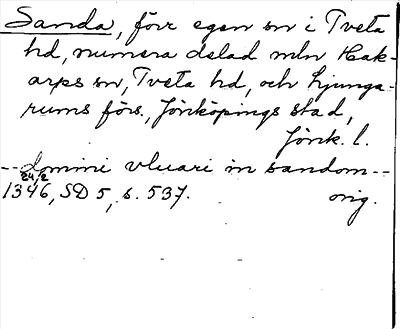 Sanda, förr egen sn i Tveta
hd, numera delad mln Hak-
arps sn, Tveta hd, och Ljunga-
rums förs., Jönköpings stad,
Jönk. l.
--domini vluari in sandom--
24/2
1346, SD 5, s. 537. orig.